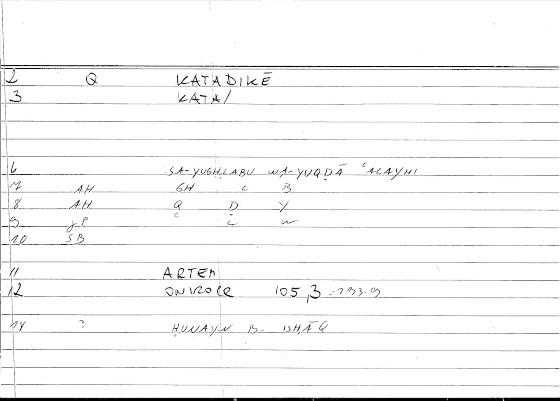 2 Q KATADIKĒ
3 KATA/
6 SA-YUGHLABU WA-YUQḌĀ ʿALAYHI
7 AH GH L B
8 AH Q Ḍ Y
9 ʿ L W
10 SB
11 ARTEM
12 ONIROCR 105,3
14 ? ḤUNAYN B. ISḤĀQ